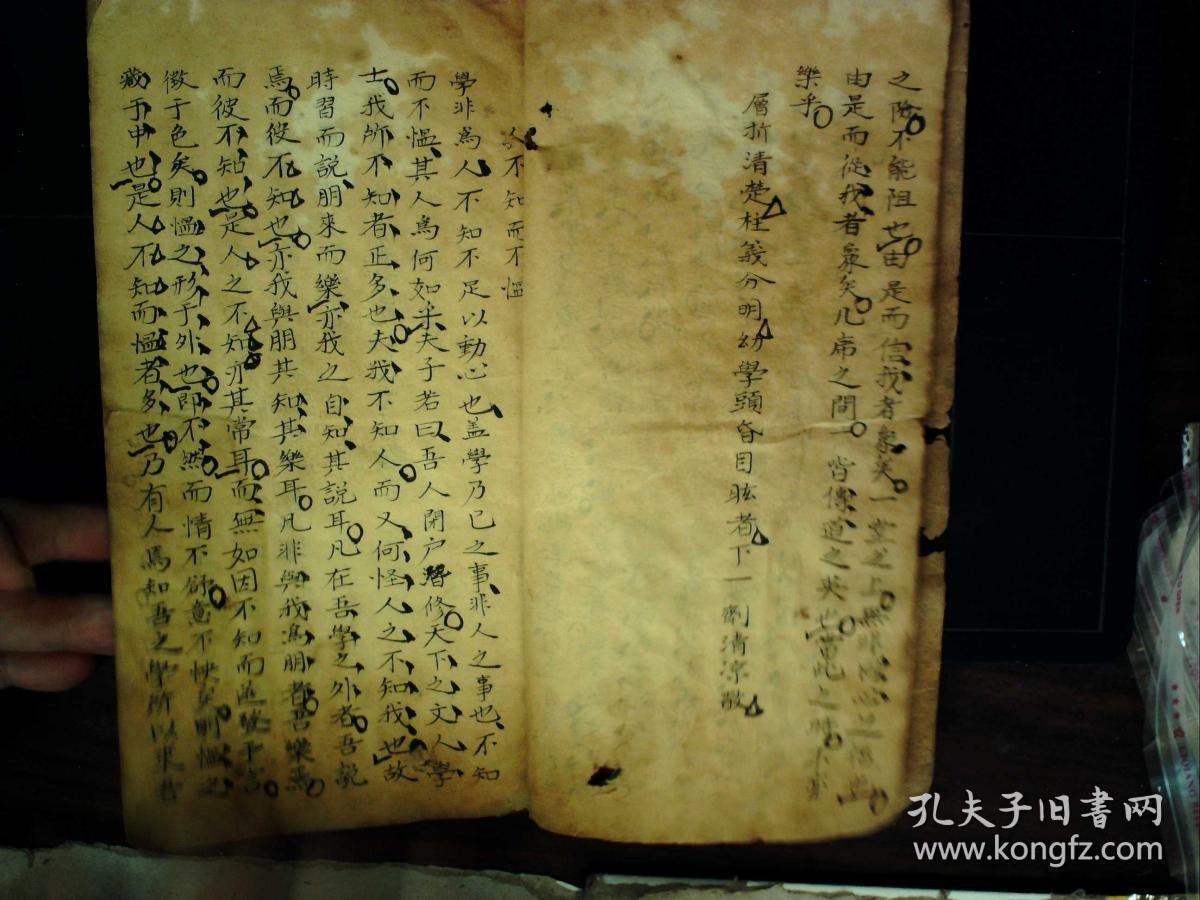 之險不能阻也由是而信我者衆矣一堂之上無非
由是而從我者衆矣几席之間皆傳道之英也當此之時不亦
樂乎
層折清楚柱義分明幼學頭昏目眩者下一劑清涼散
人不知而不慍
學非爲人不知不足以動心也盖學乃已之事非人之事也不知
而不慍其人爲何如乎夫子若曰吾人閉户潛修天下之文人學
士我所不知者正多也夫我不知人而又何怪人之不知我也故
時習而説朋來而樂亦我之自知其説耳凡在吾學之外者吾説
焉而彼不知也亦我與朋其知其樂耳凡非與我爲朋者吾樂焉
而彼不知也是人之不知亦其常耳而無如因不知而遂發于言
徴于色矣則慍之形于外也即不然而情不舒意不快矣則慍之
藏于中也是人不知而慍者多也乃有人焉知吾之學所以求者
孔夫子旧书网
www.kongfz.com